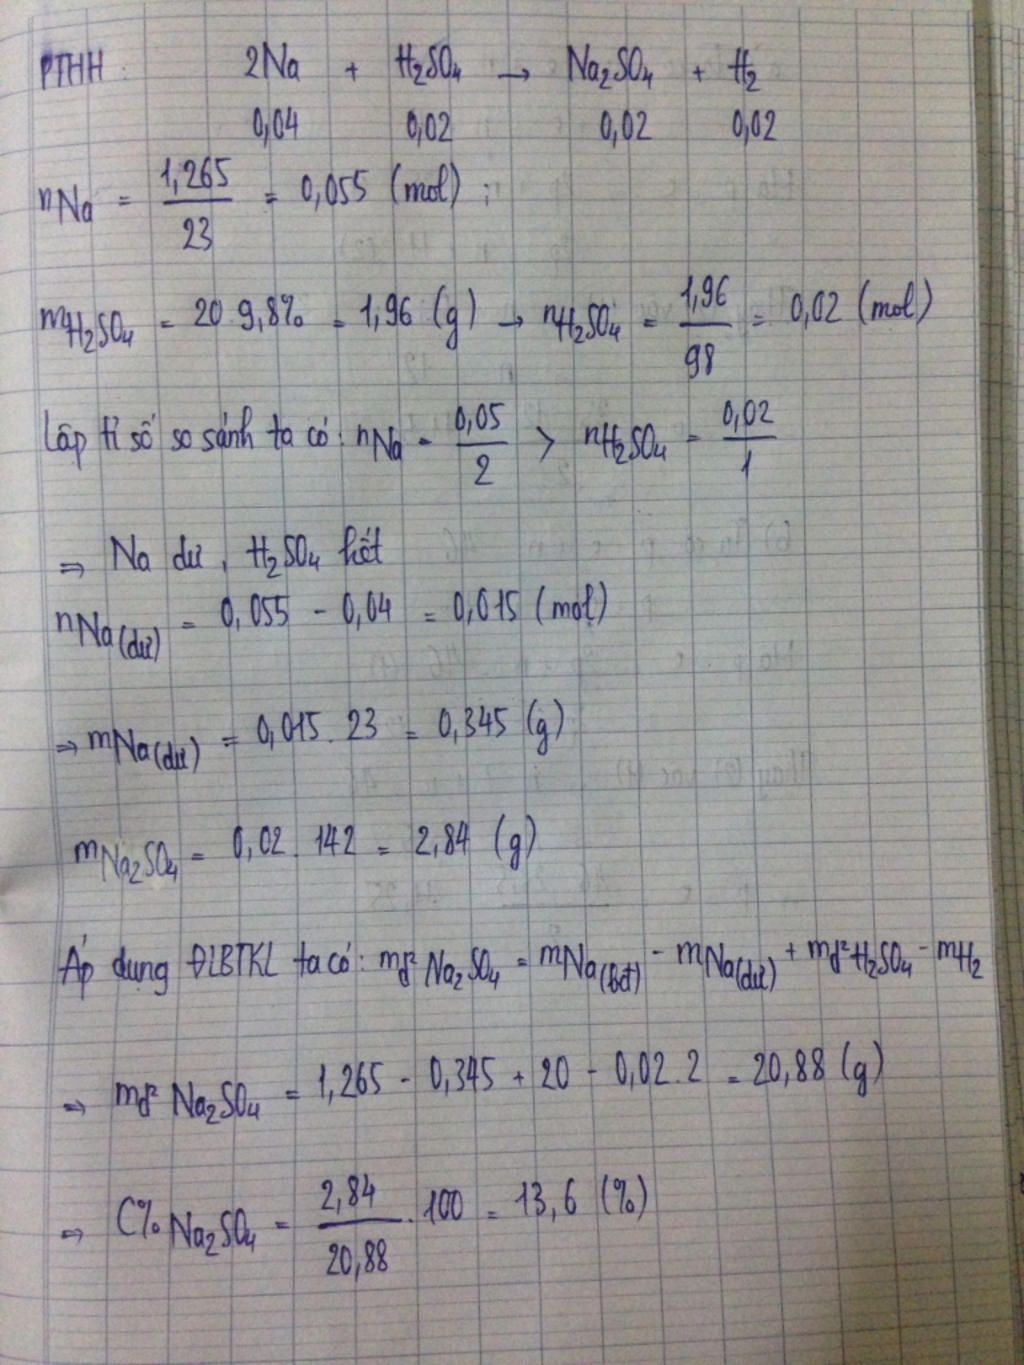 PTHH: 2Na + H₂SO₄ → Na₂SO₄ + H₂
0,04 0,02 0,02 0,02
nNa = 1,265/23 = 0,055 (mol);
mH₂SO₄ = 20.9,8% = 1,96 (g) → nH₂SO₄ = 1,96/98 = 0,02 (mol)
Lập tỉ số so sánh ta có: nNa = 0,05/2 > nH₂SO₄ = 0,02/1
⇒ Na dư, H₂SO₄ hết
nNa(dư) = 0,055 - 0,04 = 0,015 (mol)
⇒ mNa(dư) = 0,015.23 = 0,345 (g)
mNa₂SO₄ = 0,02.142 = 2,84 (g)
Áp dụng ĐLBTKL ta có: md² Na₂SO₄ = mNa(bđ) - mNa(dư) + md² H₂SO₄ - mH₂
⇒ md² Na₂SO₄ = 1,265 - 0,345 + 20 - 0,02.2 = 20,88 (g)
⇒ C% Na₂SO₄ = 2,84/20,88 .100 = 13,6 (%)